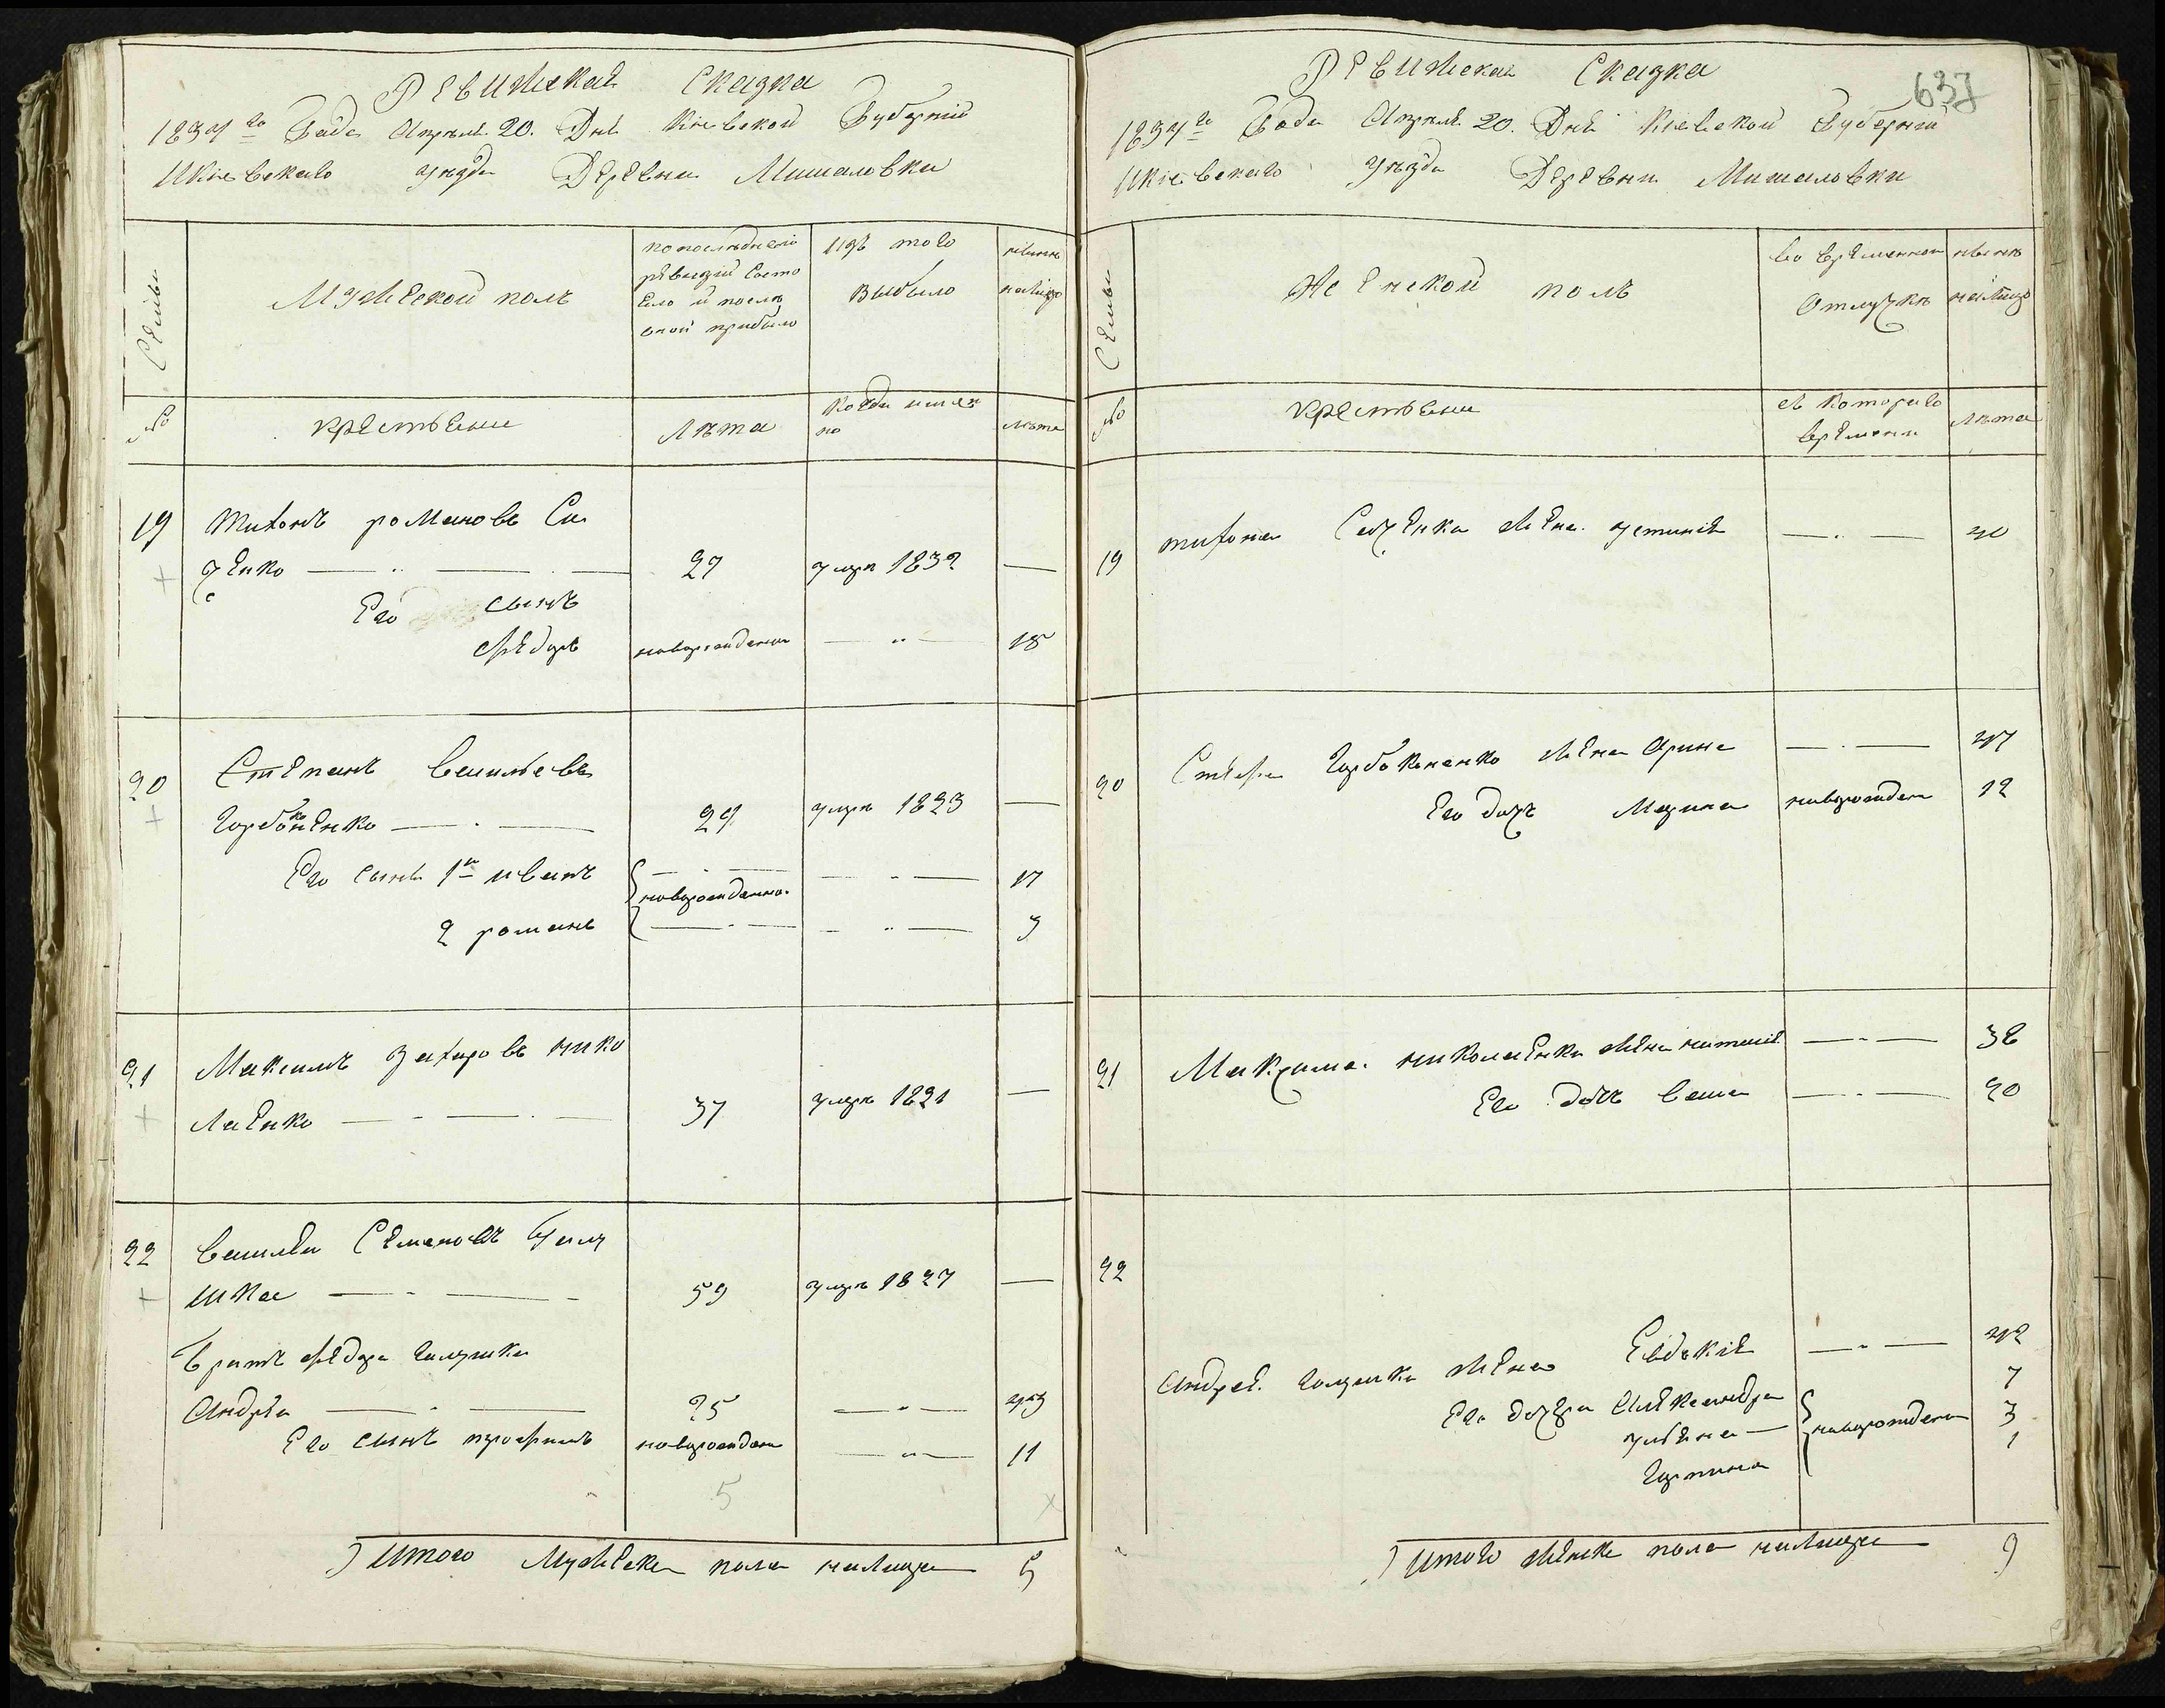 Ревижская Сказка
1834го Года Апреля 20. Дня Киевской Губернии
Икиевскаго уезда Деревни Мишаловки
Семьи
Мужеской полъ
попоследней
ревизии Состо
ело и после
оной прибыло
изъ того
выбыло
ныне
налицо
№
крестьяне
Лета
когда имян
но
лета
19
Тихонъ романовъ Са
ченко
27
умре 1832
Его сынъ
Фёдоръ
новорожденн
18
20
Степанъ Васильевъ
Горбоконенко
29
умре 1823
Его сынъ 1й иванъ
новорожденно
17
2 романъ
3
21
Максимъ Захаровъ нико
лаенко
37
умре 1821
22
Василей Семеновъ Галу
шка
59
умре 1827
Братъ Фёдора Галушки
Андрей
25
43
Его сынъ трофимъ
новорожден
11
5
Итого Мужеска пола налицо 5
637
Ревижская Сказка
1834го Года Апреля 20. Дня Киевской Губернии
Икиевскаго уезда Деревни Мишаловки
Семьи
Женской полъ
во временной
Отлучке
ныне
налицо
№
крестьяне
съ котораго
времени
лета
19
тихона Саченка жена устиния
40
20
Стефа Горбоконенко жена Арина
47
Его дочь Марина
новорожден
12
21
Максима николаенка жена наталия
38
Его дочь Ваша
20
22
Андрея Галушки жена Евдокия
42
Его дочери Александра
7
ульяна
новорожден
3
Горпина
1
Итого женска пола налицо 9